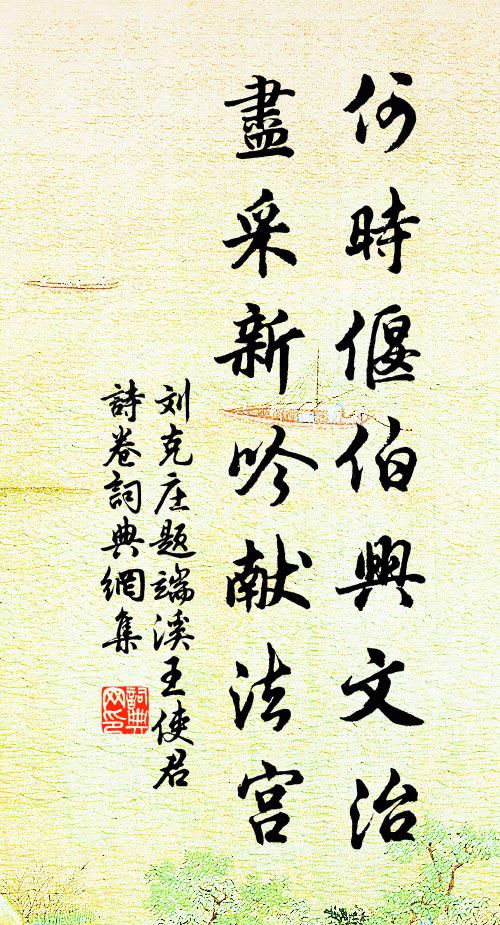 何時偃伯興文治
盡采新吟献法宫
刘克庄题端溪王使君
詩卷詞典網集
詞典网印